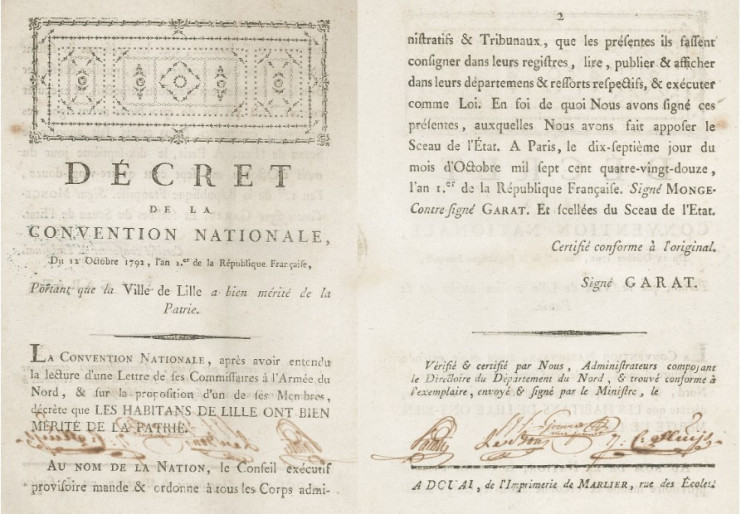 DÉCRET
DE LA
CONVENTION NATIONALE,
Du 12 Octobre 1792, l'an 1.er de la République Française,
Portant que la Ville de Lille a bien mérité de la
Patrie.
LA CONVENTION NATIONALE, après avoir entendu
la lecture d'une Lettre de ses Commissaires à l'Armée du
Nord, & sur la proposition d'un de ses Membres,
décrète que LES HABITANS DE LILLE ONT BIEN
MÉRITÉ DE LA PATRIE.
AU NOM DE LA NATION, le Conseil exécutif
provisoire mande & ordonne à tous les Corps admi-
2
nistratifs & Tribunaux, que les présentes ils fassent
consigner dans leurs registres, lire, publier & afficher
dans leurs départemens & ressorts respectifs, & exécuter
comme Loi. En foi de quoi Nous avons signé ces
présentes, auxquelles Nous avons fait apposer le
Sceau de l'État. A Paris, le dix-septième jour du
mois d'Octobre mil sept cent quatre-vingt-douze,
l'an 1.er de la République Française. Signé MONGE-
Contre-signé GARAT. Et scellées du Sceau de l'Etat.
Certifié conforme à l'original.
Signé GARAT.
Vérifié & certifié par Nous, Administrateurs composant
le Directoire du Département du Nord, & trouvé conforme à
l'exemplaire, envoyé & signé par le Ministre, le
A DOUAI, de l'Imprimerie de MARLIER, rue des Écoles.